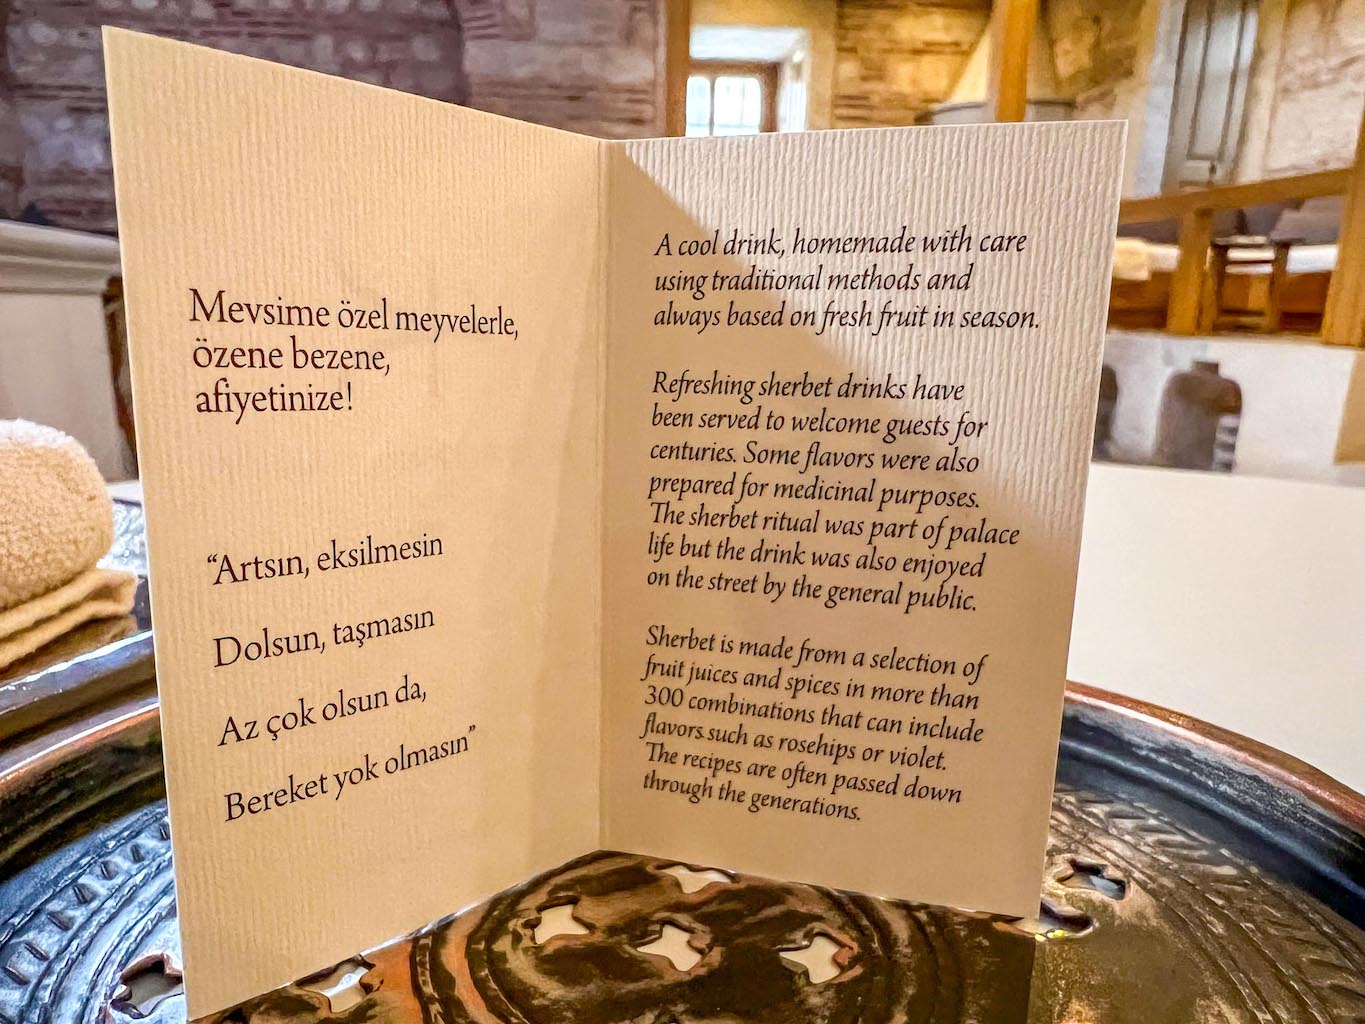 Mevsime özel meyvelerle,
özene bezene,
afiyetinize!
“Artsın, eksilmesin
Dolsun, taşmasın
Az çok olsun da,
Bereket yok olmasın”
A cool drink, homemade with care
using traditional methods and
always based on fresh fruit in season.
Refreshing sherbet drinks have
been served to welcome guests for
centuries. Some flavors were also
prepared for medicinal purposes.
The sherbet ritual was part of palace
life but the drink was also enjoyed
on the street by the general public.
Sherbet is made from a selection of
fruit juices and spices in more than
300 combinations that can include
flavors such as rosehips or violet.
The recipes are often passed down
through the generations.